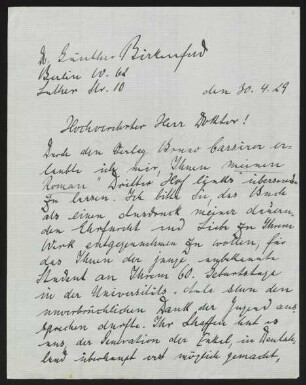 Dr. Günther Birkenfeld
Berlin W. 62
Luther Str. 10
den 30. 4. 29
Hochverehrter Herr Doktor!
Durch den Verlag Bruno Cassirer er-
laubte ich mir, Ihnen meinen
Roman Dritter Hof links übersenden
zu lassen. Ich bitte Sie, das Buch
als einen Ausdruck meiner dauern-
den Ehrfurcht und Liebe zu Ihrem
Werk entgegennehmen zu wollen, für
das Ihnen der junge unbekannte
Student an Ihrem 60. Geburtstage
in der Universitäts Aula schon den
unverbrüchlichen Dank der Jugend aus-
sprechen durfte. Ihr Schaffen hat es
uns, der Generation der Enkel, in Deutsch-
land überhaupt erst möglich gemacht,